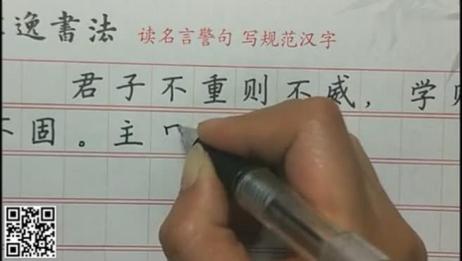 逸書法 读名言警句 写规范汉字
君子不重则不威，学
不固。主